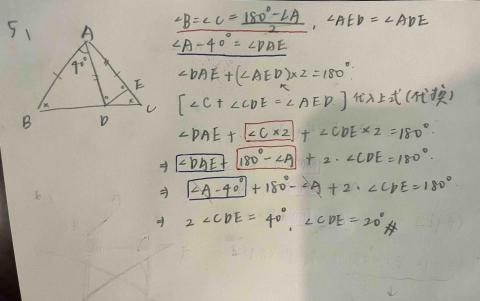 5,
A
40°
B
D
E
C
∠B=∠C=\frac{180°-∠A}{2}, ∠AED=∠ADE
∠A-40°=∠DAE
∠DAE+(∠AED)×2=180°
[∠C+∠CDE=∠AED] 代入上式(代換)
∠DAE+∠C×2+∠CDE×2=180°
⇒ ∠DAE+180°-∠A+2·∠CDE=180°
⇒ ∠A-40°+180°-∠A+2·∠CDE=180°
⇒ 2∠CDE=40°, ∠CDE=20°#